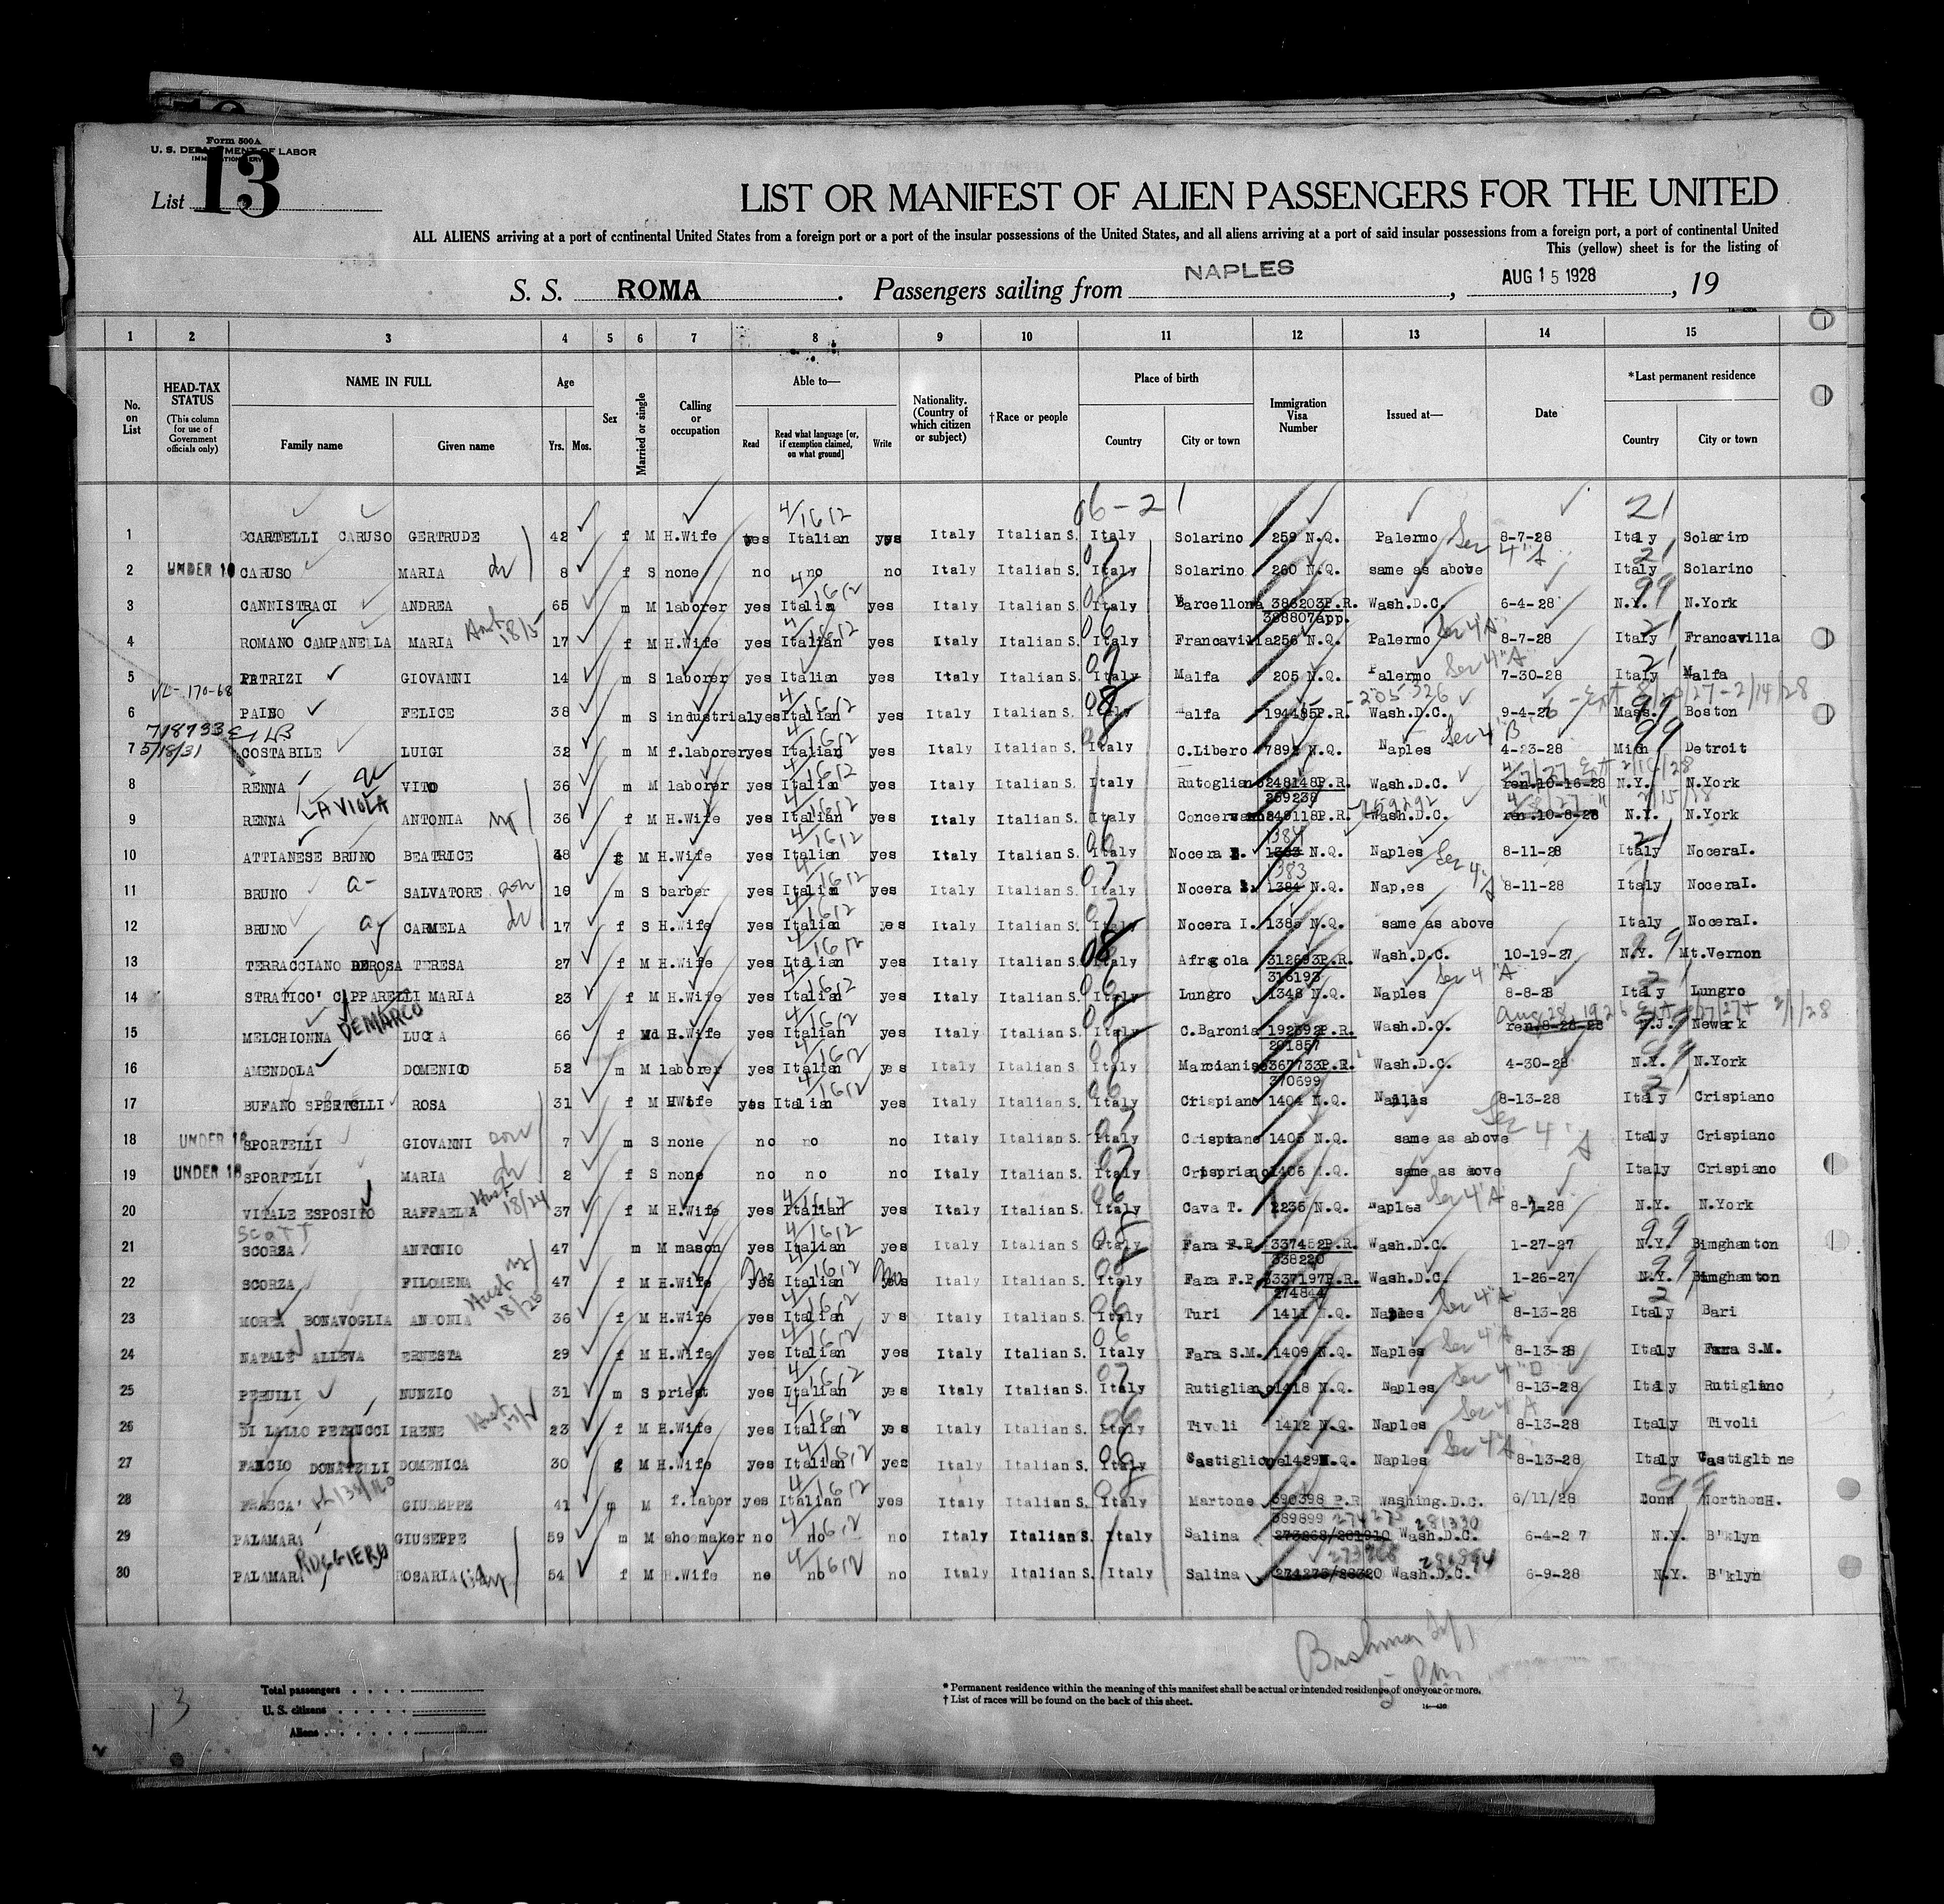 Form 500A
U. S. DEPARTMENT OF LABOR
IMMIGRATION SERVICE
List 13
LIST OR MANIFEST OF ALIEN PASSENGERS FOR THE UNITED
ALL ALIENS arriving at a port of continental United States from a foreign port or a port of the insular possessions of the United States, and all aliens arriving at a port of said insular possessions from a foreign port, a port of continental United
This (yellow) sheet is for the listing of
S. S. ROMA. Passengers sailing from NAPLES, AUG 15 1928, 19
1 2 3 4 5 6 7 8 9 10 11 12 13 14 15
No. on List HEAD-TAX STATUS (This column for use of Government officials only) NAME IN FULL Family name Given name Age Yrs. Mos. Sex Married or single Calling or occupation Able to— Read Read what language [or, if exemption claimed, on what ground] Write Nationality. (Country of which citizen or subject) †Race or people Place of birth Country City or town Immigration Visa Number Issued at— Date *Last permanent residence Country City or town
06-21 21
1 CARTELLI CARUSO GERTRUDE 42 f M H.Wife yes Italian yes Italy Italian S. Italy Solarino 259 N.Q. Palermo 8-7-28 Italy Solarino
2 UNDER 16 CARUSO MARIA 8 f S none no no no Italy Italian S. Italy Solarino 260 N.Q. same as above Italy Solarino
3 CANNISTRACI ANDREA 65 m M laborer yes Italian yes Italy Italian S. Italy Barcellona 386203P.R. 388807app. Wash.D.C. 6-4-28 N.Y. N.York
4 ROMANO CAMPANELLA MARIA 17 f M H.Wife yes Italian yes Italy Italian S. Italy Francavilla 256 N.Q. Palermo 8-7-28 Italy Francavilla
5 PATRIZI GIOVANNI 14 m S laborer yes Italian yes Italy Italian S. Italy Malfa 205 N.Q. Palermo 7-30-28 Italy Malfa
6 PAINO FELICE 38 m S industrial yes Italian yes Italy Italian S. Italy alfa 194485P.R. Wash.D.C. 9-4-27 Mass. Boston
718733
5/18/31
7 COSTABILE LUIGI 32 m M f.laborer yes Italian yes Italy Italian S. Italy C.Libero 789 N.Q. Naples 4-23-28 Mich Detroit
8 RENNA VITO 36 m M laborer yes Italian yes Italy Italian S. Italy Rutogliano 248148P.R. 259238 Wash.D.C. ren.10-16-28 N.Y. N.York
LA VIOLA
9 RENNA ANTONIA 36 f M H.Wife yes Italian yes Italy Italian S. Italy 249118P.R. Wash.D.C. ren.10-8-28 N.Y. N.York
10 ATTIANESE BRUNO BEATRICE 48 f M H.Wife yes Italian yes Italy Italian S. Italy Nocera I. 1384 N.Q. Naples 8-11-28 Italy Nocera I.
11 BRUNO SALVATORE son 19 m S barber yes Italian yes Italy Italian S. Italy Nocera I. 1383 N.Q. Nap,es 8-11-28 Italy Nocera I.
12 BRUNO CARMELA 17 f S H.Wife yes Italian yes Italy Italian S. Italy Nocera I. 1385 N.Q. same as above Italy Nocera I.
13 TERRACCIANO DEROSA TERESA 27 f M H.Wife yes Italian yes Italy Italian S. Italy Afragola 312693P.R. 316193 Wash.D.C. 10-19-27 N.Y. Mt.Vernon
14 STRATICO' CAPPARELLI MARIA 23 f M H.Wife yes Italian yes Italy Italian S. Italy Lungro 1348 N.Q. Naples 8-8-28 Italy Lungro
DEMARCO
15 MELCHIONNA LUCIA 66 f Md H.Wife yes Italian yes Italy Italian S. Italy C.Baronia 192392P.R. 291857 Wash.D.C. ren.8-28-28 N.J. Newark
16 AMENDOLA DOMENICO 52 m M laborer yes Italian yes Italy Italian S. Italy Marcianise 367733P.R. 370699 Wash.D.C. 4-30-28 N.Y. N.York
17 BUFANO SPERTELLI ROSA 31 f M HWife yes Italian yes Italy Italian S. Italy Crispiano 1404 N.Q. Naples 8-13-28 Italy Crispiano
18 UNDER 16 SPORTELLI GIOVANNI son 7 m S none no no no Italy Italian S. Italy Crispiano 1405 N.Q. same as above Italy Crispiano
19 UNDER 16 SPORTELLI MARIA 2 f S none no no no Italy Italian S. Italy Crispriano 1406 N.Q. same as above Italy Crispiano
20 VITALE ESPOSITO RAFFAELA 37 f M H.Wife yes Italian yes Italy Italian S. Italy Cava T. 2235 N.Q. Naples 8-1-28 N.Y. N.York
21 SCORZA ANTONIO 47 m M mason yes Italian yes Italy Italian S. Italy Fara F.P. 337452P.R. 338220 Wash.D.C. 1-27-27 N.Y. Binghamton
22 SCORZA FILOMENA 47 f M H.Wife yes Italian yes Italy Italian S. Italy Fara F.P. 337197P.R. 274844 Wash.D.C. 1-26-27 N.Y. Binghamton
23 MOREA BONAVOGLIA ANTONIA 36 f M H.Wife yes Italian yes Italy Italian S. Italy Turi 1411 N.Q. Naples 8-13-28 Italy Bari
24 NATALE ALLEVA ERNESTA 29 f M H.Wife yes Italian yes Italy Italian S. Italy Fara S.M. 1409 N.Q. Naples 8-13-28 Italy Fara S.M.
25 PERUILI NUNZIO 31 m S priest yes Italian yes Italy Italian S. Italy Rutigliano 1418 N.Q. Naples 8-13-28 Italy Rutigliano
26 DI LALLO PETRUCCI IRENE 23 f M H.Wife yes Italian yes Italy Italian S. Italy Tivoli 1412 N.Q. Naples 8-13-28 Italy Tivoli
27 FALCIO DONATELLI DOMENICA 30 f M H.Wife yes Italian yes Italy Italian S. Italy Castiglione 1429 N.Q. Naples 8-13-28 Italy Castiglione
28 FRASCA' GIUSEPPE 41 m M f.labor yes Italian yes Italy Italian S. Italy Martone 390398 P.R 389899 Washing.D.C. 6/11/28 Conn NorthonH.
29 PALAMARA GIUSEPPE 59 m M shoemaker no no no Italy Italian S. Italy Salina 274275 281330 Wash.D.C. 6-4-27 N.Y. B'klyn
RUGGIERO
30 PALAMARA ROSARIA 54 f M H.Wife no no no Italy Italian S. Italy Salina Wash.D.C. 6-9-28 N.Y. B'klyn
Total passengers
U. S. citizens
Aliens
* Permanent residence within the meaning of this manifest shall be actual or intended residence of one year or more.
† List of races will be found on the back of this sheet.
13